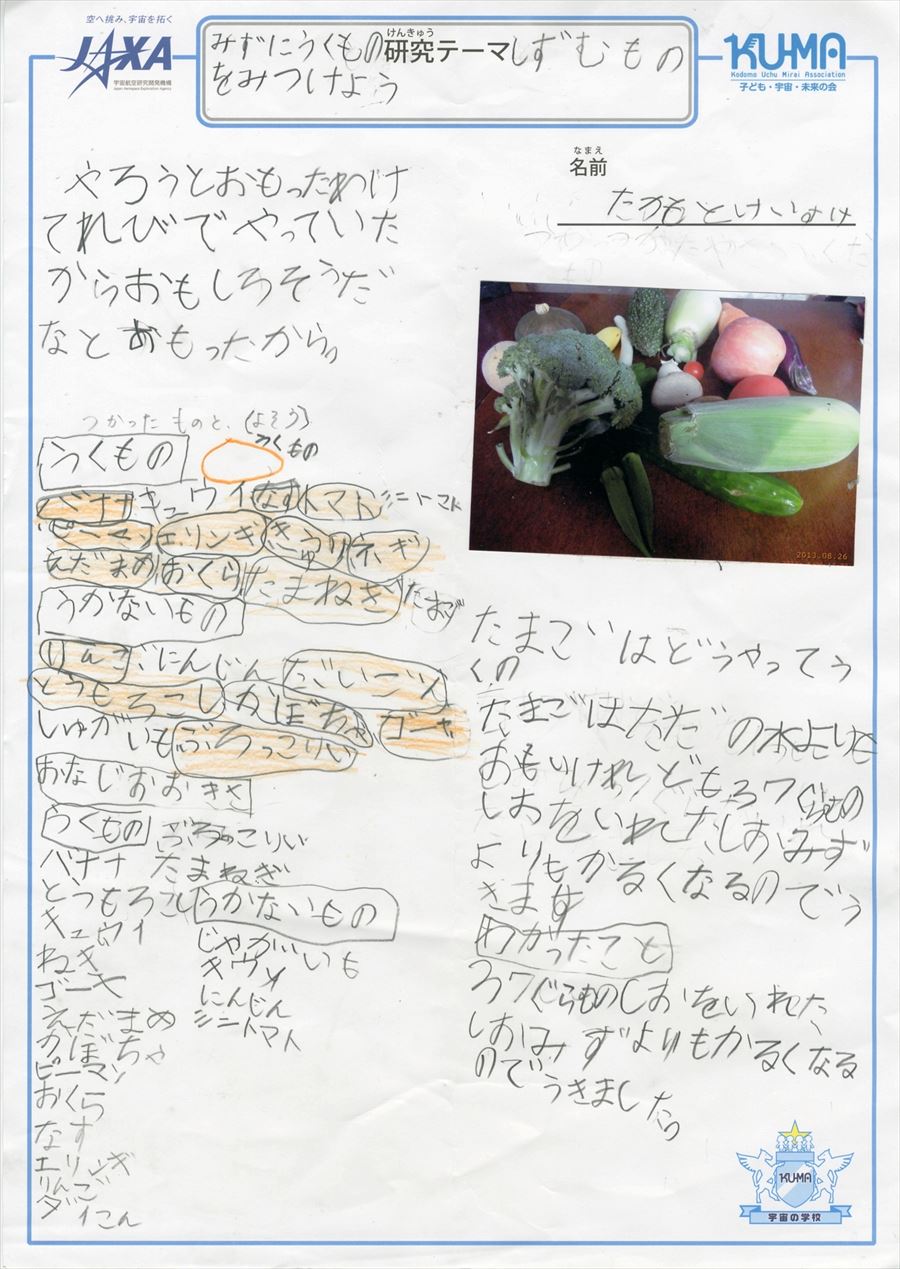 空へ挑み、宇宙を拓く
JAXA
宇宙航空研究開発機構
Japan Aerospace Exploration Agency
けんきゅう
研究テーマ
みずにうくもの しずむもの
をみつけよう
KU-MA
Kodomo Uchu Mirai Association
子ども・宇宙・未来の会
なまえ
名前
たかもとけいすけ
やろうとおもったわけ
てれびでやっていた
からおもしろそうだ
なとおもったから。
つかったものと、(よそう)
うくもの
うくもの
バナナ キュウイ なす トマト ミニトマト
ピーマン エリンギ きゅうり ネギ
えだまめ おくら たまねぎ たまご
うかないもの
りんご にんじん だいこん
とうもろこし かぼちゃ ゴーヤ
じゃがいも ぶろっこりい
おなじおおきさ
うくもの ぶろっこりい
バナナ たまねぎ
とうもろこし
キュウイ
ねぎ
ゴーヤ
えだまめ
かぼちゃ
ピーマン
おくら
なす
エリンギ
りんご
ダイこん
うかないもの
じゃがいも
にんじん
ミニトマト
2013.08.26
たまごはどうやってう
くの
たまごはただの水よりも
おもいけれども37ぐらもの
しおをいれたしおみず
よりもかるくなるのでう
きます
わかったこと
37ぐらものしおをいれた
しおみずよりもかるくなる
のでうきました
KU-MA
宇宙の学校